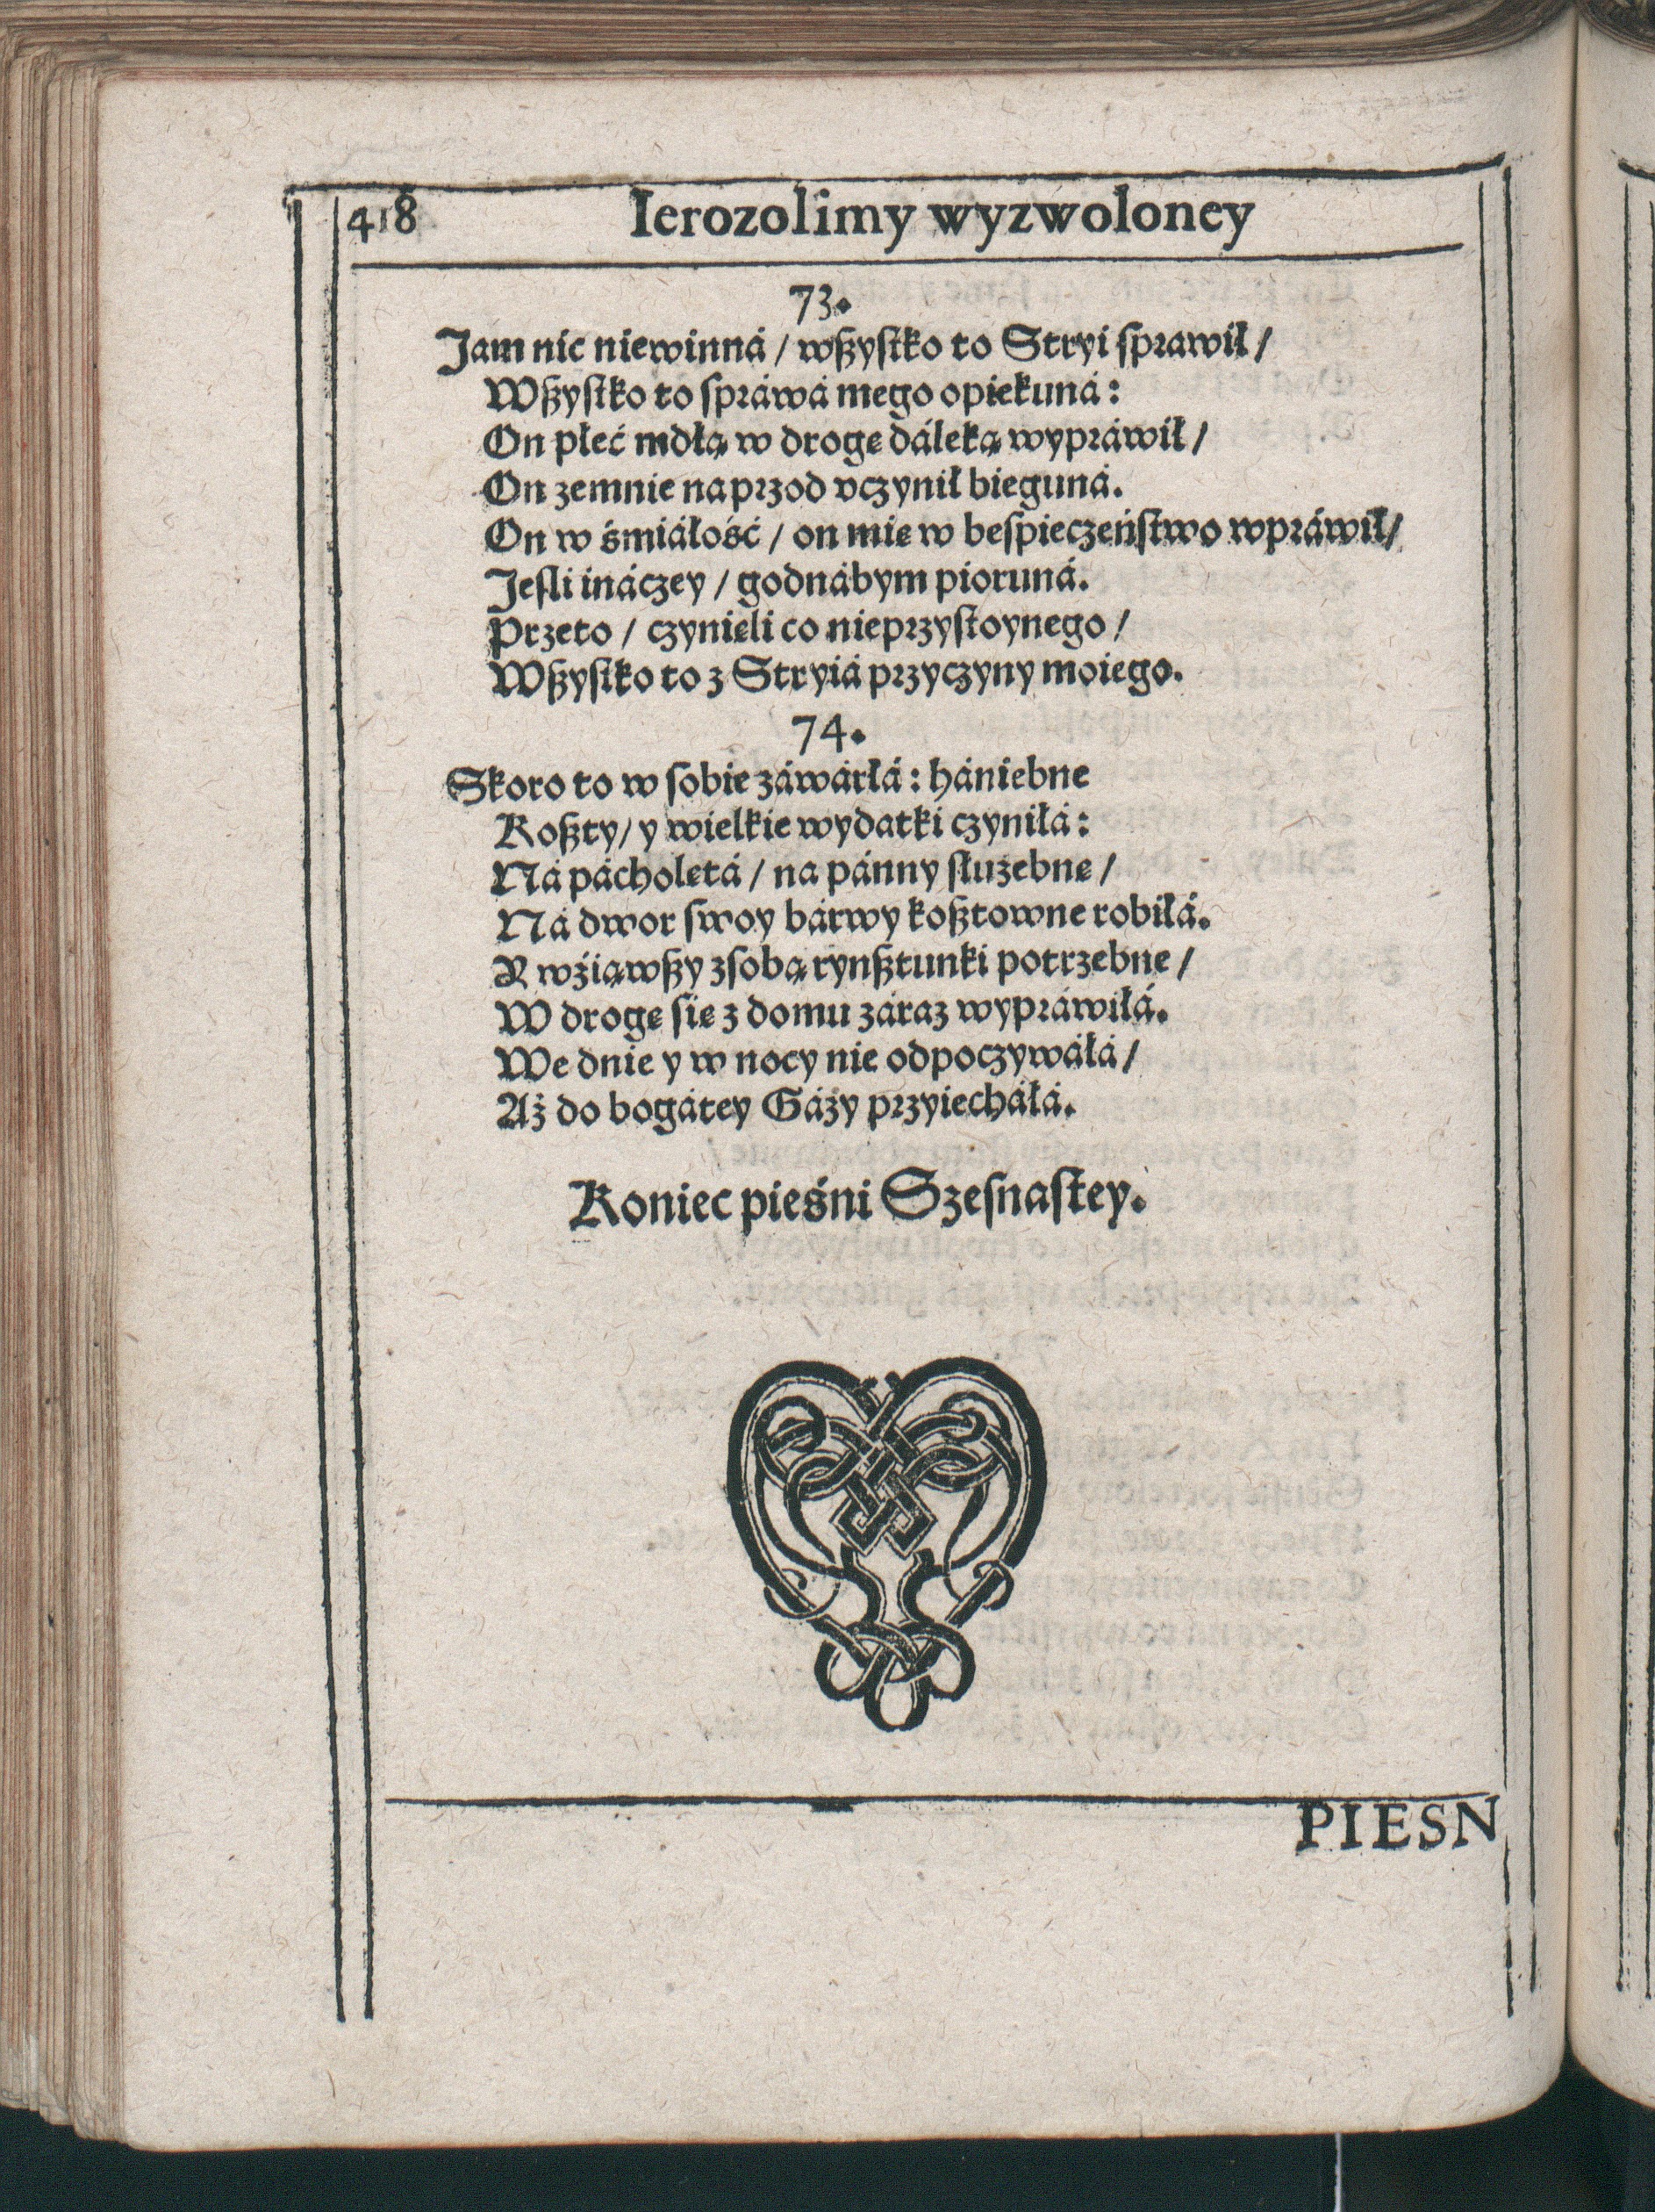 418 Ierozolimy wyzwoloney
73.
Jam nic niewinná / wßyſtko to Stryi ſprawił /
Wßyſtko to ſpráwá mego opiekuná:
On płeć mdłą w drogę dáleką wypráwił /
On zemnie naprzod vczynił bieguná.
On w śmiáłość / on mie w beſpieczeńſtwo wpráwił /
Jeſli ináczey / godnábym pioruná.
Przeto / czynieli co nieprzyſtoynego /
Wßyſtko to z Stryiá przyczyny moiego.
74.
Skoro to w ſobie záwárłá: hániebne
Koßty / y wielkie wydatki czyniłá:
Ná pácholetá / na pánny ſłużebne /
Ná dwor ſwoy bárwy koßtowne robiłá.
Y wźiąwßy zſobą rynßtunki potrzebne /
W drogę ſie z domu záraz wypráwiłá.
We dnie y w nocy nie odpoczywáłá /
Aż do bogátey Gázy przyiecháłá.
Koniec pieśni Szeſnaſtey.
PIESN